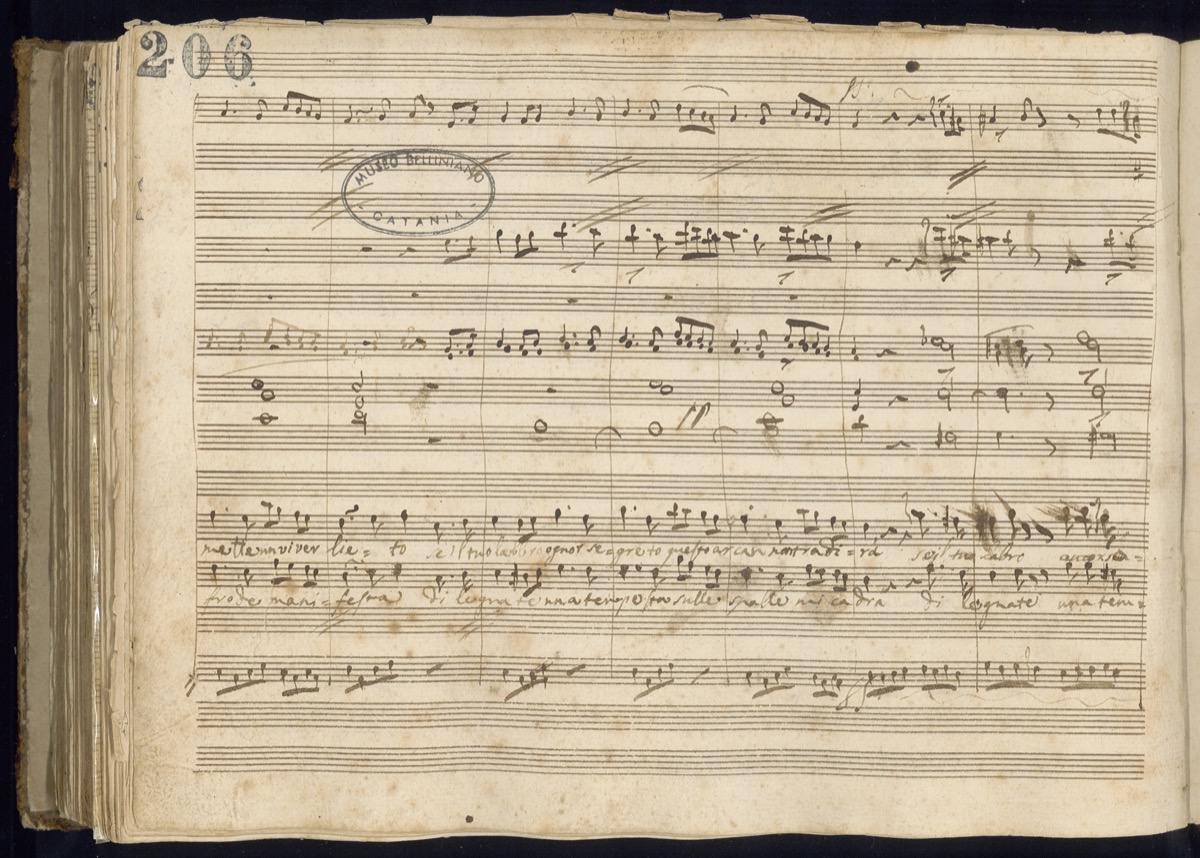 206
MUSEO BELLINIANO
CATANIA
mette un viver lie = to se il tuo labbro ognor se = greto questo arcan nostra di = rà se il tuo labro
frode mani = festa di legnate una tempesta sulle spalle mi cadra di legnate una tem =